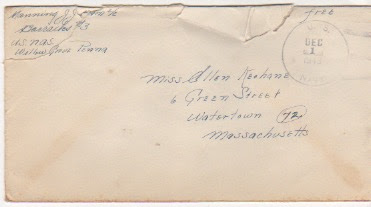 Manning J.J.
Barracks #3
U.S. NAS
Willow Grove Penna
Free
DEC
1
Miss Ellen Keohane
6 Green Street
Watertown (72)
Massachusetts